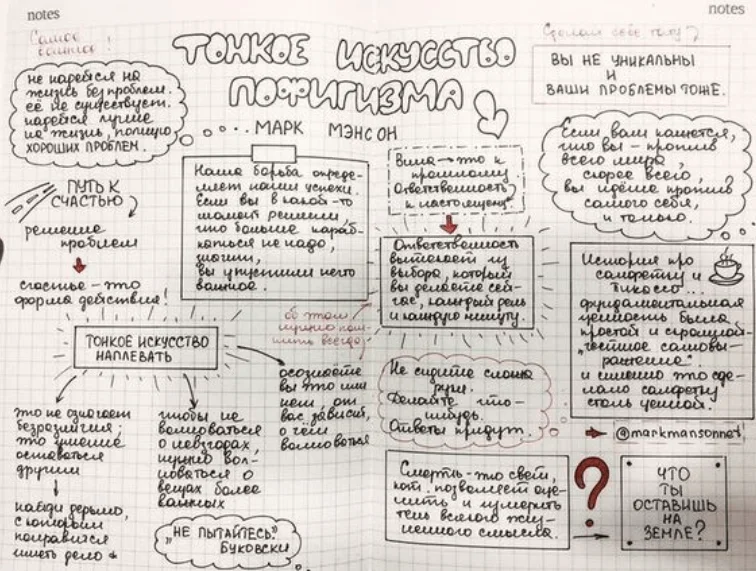 notes
notes
Самое
важное!
Сделай себе тату?
ТОНКОЕ ИСКУССТВО
ПОФИГИЗМА
МАРК МЭНСОН
не надейся на
жизнь без проблем.
её не существует.
надейся лучше
на жизнь, полную
ХОРОШИХ ПРОБЛЕМ.
ПУТЬ К
СЧАСТЬЮ
решение
проблем
счастье - это
форма действие!
Наша борьба опреде-
ляет наши успехи.
Если вы в какой-то
момент решили,
что больше караб-
каться не надо,
значит,
вы упустили нечто
важное.
Вина → это к
прошлому.
Ответственность
к настоящему.
Ответственность
вытекает из
выбора, который
вы делаете сей-
час, каждый день
и каждую минуту.
об этом
нужно пом-
нить всегда
ВЫ НЕ УНИКАЛЬНЫ
И
ВАШИ ПРОБЛЕМЫ ТОЖЕ.
Если вам кажется,
что вы - против
всего мира,
скорее всего,
вы идёте против
самого себя,
и только.
История про
салфетку и
Пикассо...
фундаментальная
ценность была
простой и скромной:
"честное самовы-
ражение".
и именно это сде-
лало салфетку
столь ценной.
@markmansonnet
ТОНКОЕ ИСКУССТВО
НАПЛЕВАТЬ
это не означает
безразличия;
это умение
оставаться
другим
найди дерьмо,
с которым
понравится
иметь дело
чтобы не
волноваться
о невзгодах,
нужно вол-
новаться о
вещах более
важных
осознаёте
вы это или
нет, от
вас зависит,
о чём
волноваться
"НЕ ПЫТАЙТЕСЬ."
БУКОВСКИ
Не сидите сложа
руки.
Делайте что-
нибудь.
Ответы придут.
Смерть - это свет,
кот. позволяет оце-
нить и измерить
тень всякого жиз-
ненного смысла.
?
ЧТО
ТЫ
ОСТАВИШЬ
НА
ЗЕМЛЕ?